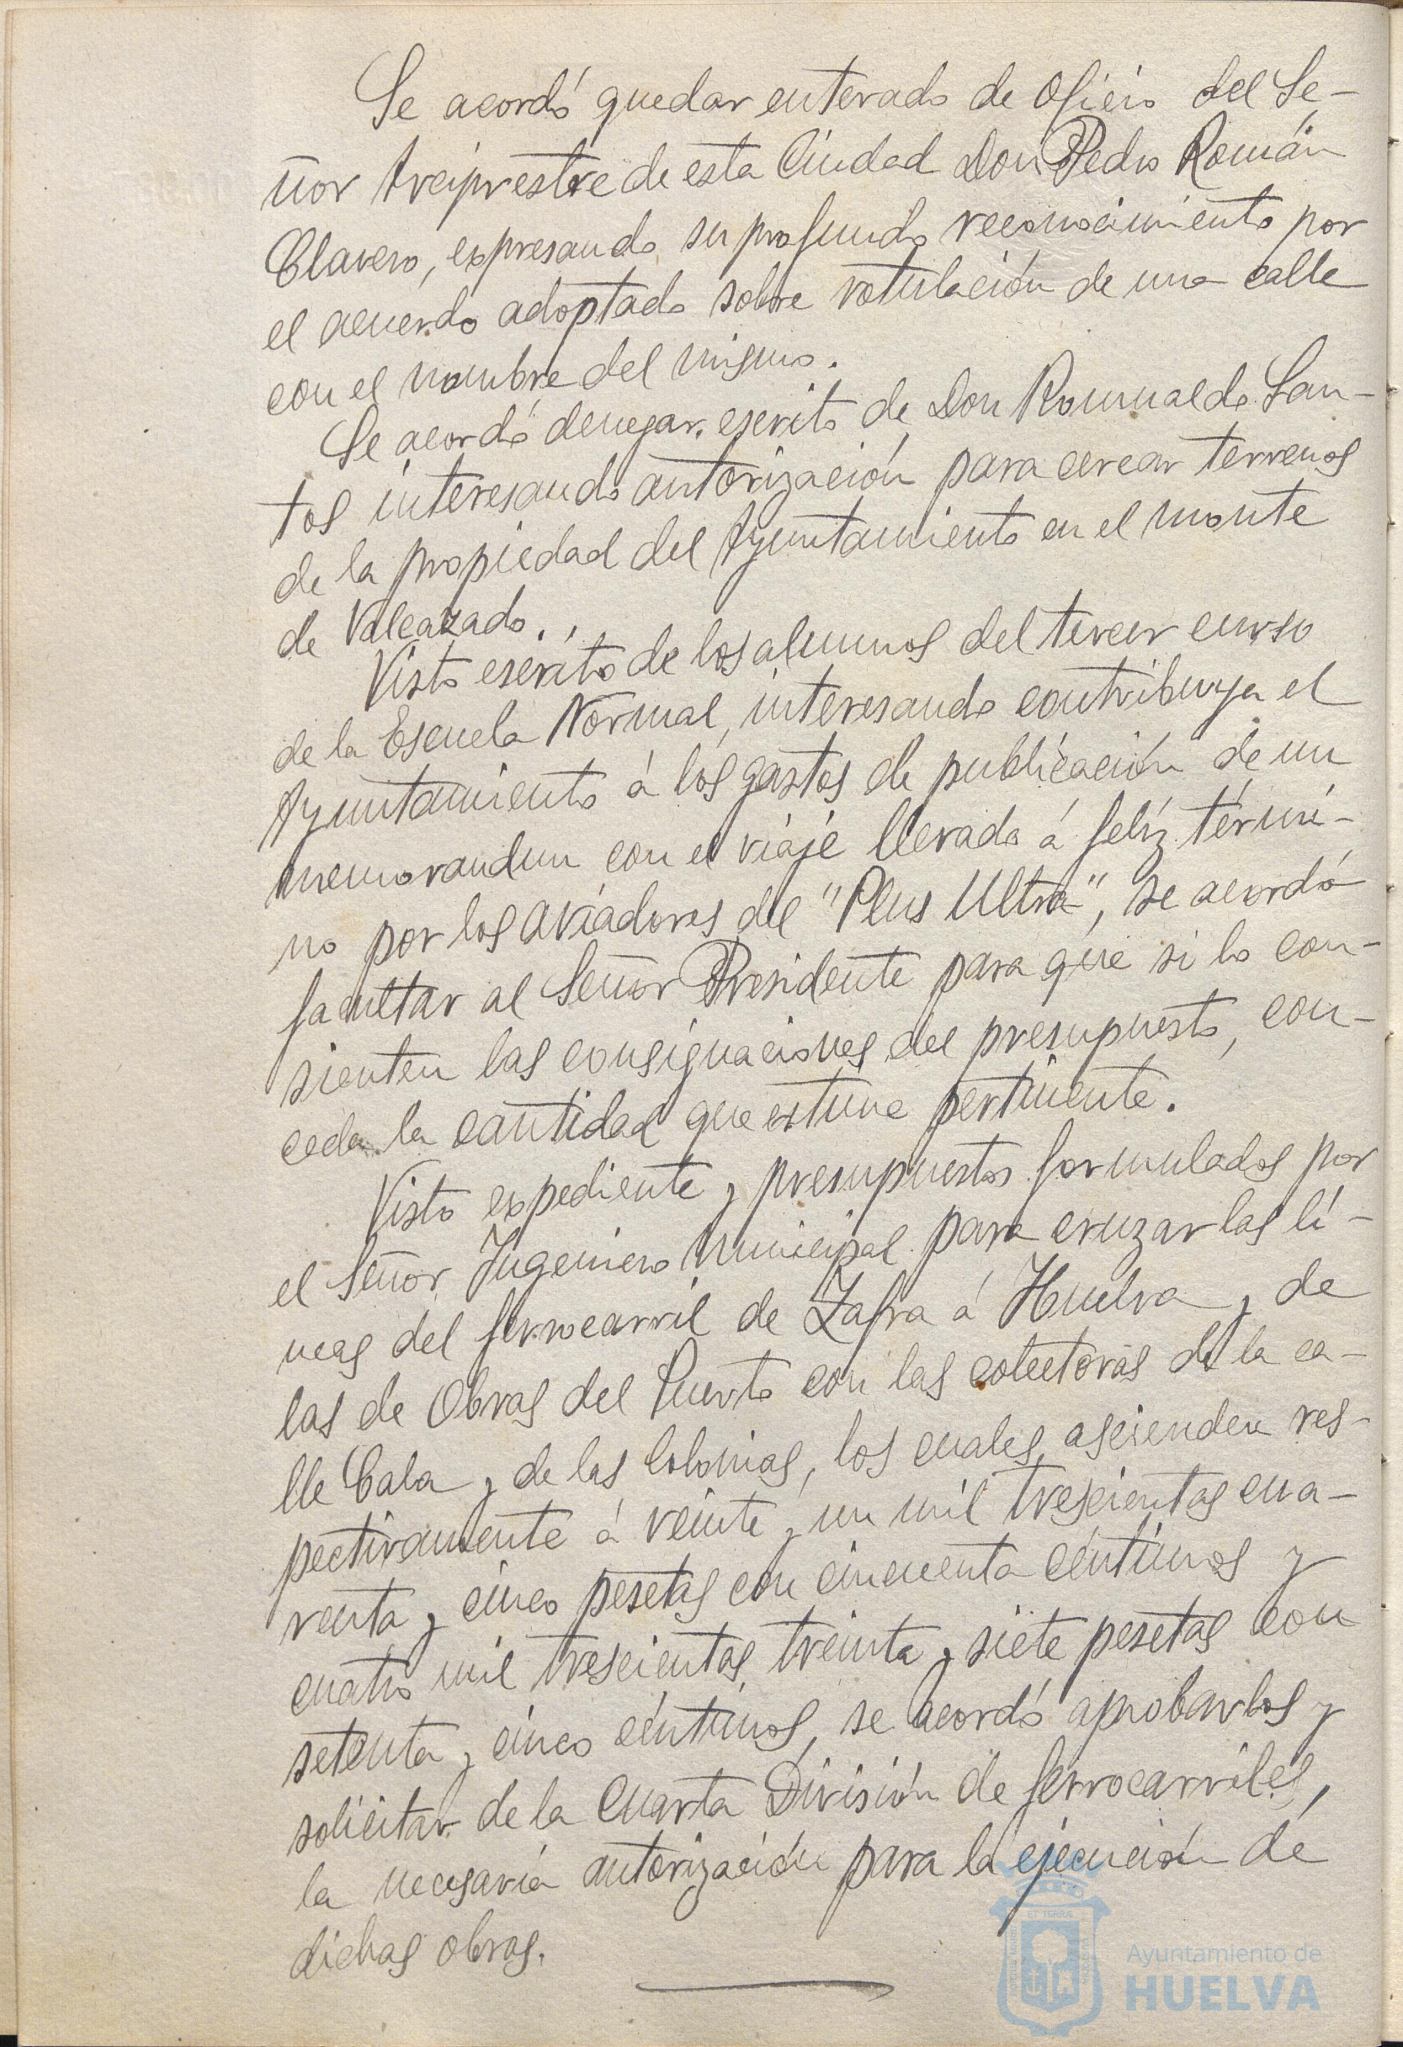 Se acordó quedar enterado de oficio del Se-
ñor Arcipreste de esta Ciudad Don Pedro Román
Clavero, expresando su profundo reconocimiento por
el acuerdo adoptado sobre rotulación de una calle
con el nombre del mismo.
Se acordó denegar escrito de Don Romualdo San-
tos interesando autorización para cercar terrenos
de la propiedad del Ayuntamiento en el monte
de Valcazado.
Visto escrito de los alumnos del tercer curso
de la Escuela Normal, interesando contribuya el
Ayuntamiento á los gastos de publicación de un
memorandun con el viaje llevado á felíz térmi-
no por los aviadores del "Plus Ultra", se acordó
facultar al Señor Presidente para que si lo con-
sienten las consignaciones del presupuesto, con-
ceda la cantidad que estime pertinente.
Visto expediente y presupuestos formulados por
el Señor Ingeniero Municipal para cruzar las lí-
neas del ferrocarril de Zafra á Huelva y de
las de Obras del Puerto con las colectoras de la ca-
lle Cala y de las Colonias, los cuales ascienden res-
pectivamente á veinte y un mil trescientas cua-
renta y cinco pesetas con cincuenta céntimos y
cuatro mil trescientas treinta y siete pesetas con
setenta y cinco céntimos, se acordó aprobarlos y
solicitar de la Cuarta División de ferrocarriles,
la necesaria autorización para la ejecución de
dichas obras.
Ayuntamiento de
HUELVA